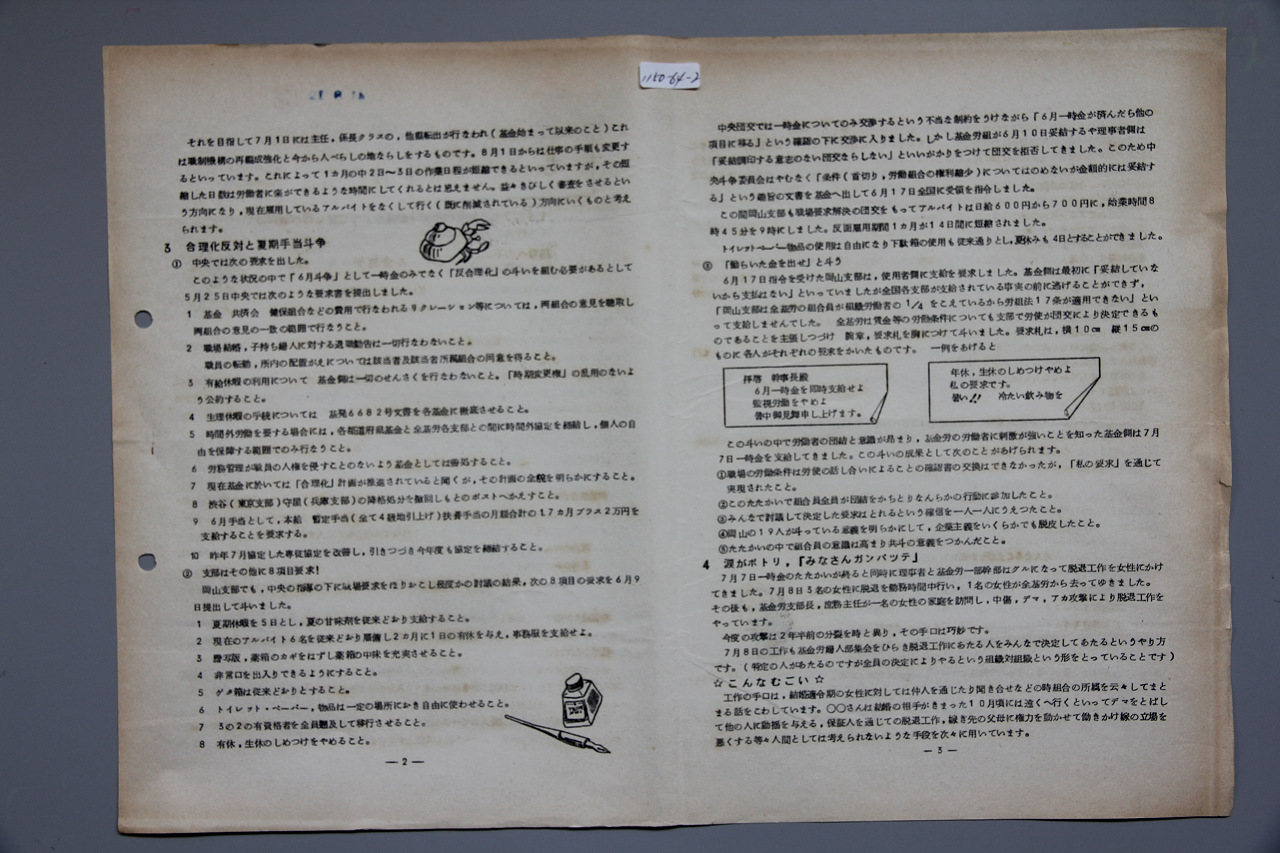 1150-64-2
それを目指して7月1日には主任,係長クラスの,他県転出が行なわれ(基金始まって以来のこと)これ
は職制機構の再編成強化と今から人べらしの地ならしをするものです。8月1日からは仕事の手順も変更す
るといっています。これによって1カ月の中2日〜3日の作業日程が短縮できるといっていますが,その短
縮した日数は労働者に楽ができるような時間にしてくれるとは思えません。益々きびしく審査をさせるとい
う方向になり,現在雇用しているアルバイトをなくして行く(既に削減されている)方向にいくものと考え
られます。
3 合理化反対と夏期手当斗争
① 中央では次の要求を出した。
このような状況の中で「6月斗争」として一時金のみでなく「反合理化」の斗いを組む必要があるとして
5月25日中央では次のような要求書を提出しました。
1 基金 共済会 健保組合などの費用で行なわれるリクレーション等については,両組合の意見を聴取し
両組合の意見の一致の範囲で行なうこと。
2 職場結婚,子持ち婦人に対する退職勧告は一切行なわないこと。
職員の転勤,所内の配置がえについては該当者及該当者所属組合の同意を得ること。
3 有給休暇の利用について 基金側は一切のせんさくを行なわないこと。「時期変更権」の乱用のないよ
う公約すること。
4 生理休暇の手続については 基発6682号文書を各基金に徹底させること。
5 時間外労働を要する場合には,各都道府県基金と全基労各支部との間に時間外協定を締結し,個人の自
由を保障する範囲でのみ行なうこと。
6 労務管理が職員の人権を侵すことのないよう基金としては善処すること。
7 現在基金に於いては「合理化」計画が推進されていると聞くが,その計画の全貌を明らかにすること。
8 渋谷(東京支部)守屋(兵庫支部)の降格処分を撤回しもとのポストへかえすこと。
9 6月手当として,本給 暫定手当(全て4級地引上げ)扶養手当の月額合計の1.7カ月プラス2万円を
支給することを要求する。
10 昨年7月協定した専従協定を改善し,引きつづき今年度も協定を締結すること。
② 支部はその他に8項目要求!
岡山支部でも,中央の指導の下に職場要求をほりおこし幾度かの討議の結果,次の8項目の要求を6月9
日提出して斗いました。
1 夏期休暇を5日とし,夏の甘味剤を従来どおり支給すること。
2 現在のアルバイト6名を従来どおり雇傭し2カ月に1日の有休を与え,事務服を支給せよ。
3 謄写版,薬箱のカギをはずし薬箱の中味を充実させること。
4 非常口を出入りできるようにすること。
5 ゲタ箱は従来どおりとすること。
6 トイレット・ペーパー,物品は一定の場所におき自由に使わせること。
7 3の2の有資格者を全員調及して移行させること。
8 有休,生休のしめつけをやめること。
— 2 —
中央団交では一時金についてのみ交渉するという不当な制約をうけながら「6月一時金が済んだら他の
項目に移る」という確認の下に交渉に入りました。しかし基金労組が6月10日妥結するや理事者側は
「妥結調印する意志のない団交ならしない」といいがかりをつけて団交を拒否してきました。このため中
央斗争委員会はやむなく「条件(首切り,労働組合の権利縮少)についてはのめないが金額的には妥結す
る」という趣旨の文書を基金へ出して6月17日全国に受領を指令しました。
この間岡山支部も職場要求解決の団交をもってアルバイトは日給600円から700円に,始業時間8
時45分を9時にしました。反面雇用期間1カ月が14日間に短縮されました。
トイレットペーパー物品の使用は自由になり下駄箱の使用も従来通りとし,夏休みも4日とすることができました。
③ 「働らいた金を出せ」と斗う
6月17日指令を受けた岡山支部は,使用者側に支給を要求しました。基金側は最初に「妥結していな
いから支払はない」といっていましたが全国各支部が支給されている事実の前に逃げることができず,
「岡山支部は全基労の組合員が組織労働者の1/4をこえているから労組法17条が適用できない」とい
って支給しませんでした。 全基労は賃金等の労働条件についても支部で労使が団交により決定できるも
のであることを主張しつづけ 腕章,要求札を胸につけて斗いました。要求札は,横10㎝ 縦15㎝の
ものに各人がそれぞれの要求をかいたものです。 一例をあげると
拝啓 幹事長殿
6月一時金を即時支給せよ
監視労働をやめよ
暑中御見舞申し上げます。
年休,生休のしめつけやめよ
私の要求です。
暑い!! 冷たい飲み物を
この斗いの中で労働者の団結と意識が昂まり,基金労の労働者に刺激が強いことを知った基金側は7月
7日一時金を支給してきました。この斗いの成果として次のことがあげられます。
①職場の労働条件は労使の話し合いによることの確認書の交換はできなかったが,「私の要求」を通じて
実現されたこと。
②このたたかいで組合員全員が団結をかちとりなんらかの行動に参加したこと。
③みんなで討議して決定した要求はとれるという確信を一人一人にうえつたこと。
④岡山の19人が斗っている意義を明らかにして,企業主義をいくらかでも脱皮したこと。
⑤たたかいの中で組合員の意識は高まり共斗の意義をつかんだこと。
4 涙がポトリ,『みなさんガンバッテ』
7月7日一時金のたたかいが終ると同時に理事者と基金労一部幹部はグルになって脱退工作を女性にかけ
てきました。7月8日5名の女性に脱退を勤務時間中行い,1名の女性が全基労から去ってゆきました。
その後も,基金労支部長,庶務主任が一名の女性の家庭を訪問し,中傷,デマ,アカ攻撃により脱退工作を
やっています。
今度の攻撃は2年半前の分裂を時と異り,その手口は巧妙です。
7月8日の工作も基金労婦人部集会をひらき脱退工作にあたる人をみんなで決定してあたるというやり方
です。(特定の人があたるのですが全員の決定によりやるという組織対組織という形をとっていることです)
☆こんなむごい☆
工作の手口は,結婚適令期の女性に対しては仲人を通じたり聞き合せなどの時組合の所属を云々してまと
まる話をこわしています。〇〇さんは結婚の相手がきまった10月頃には遠くへ行くといってデマをとばし
て他の人に動揺を与える,保証人を通じての脱退工作,嫁ぎ先の父母に権力を動かせて働きかけ嫁の立場を
悪くする等々人間としては考えられないような手段を次々に用いています。
— 3 —